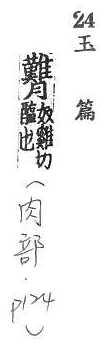 24 玉篇
臡奴雞切醢也(肉部.p124)